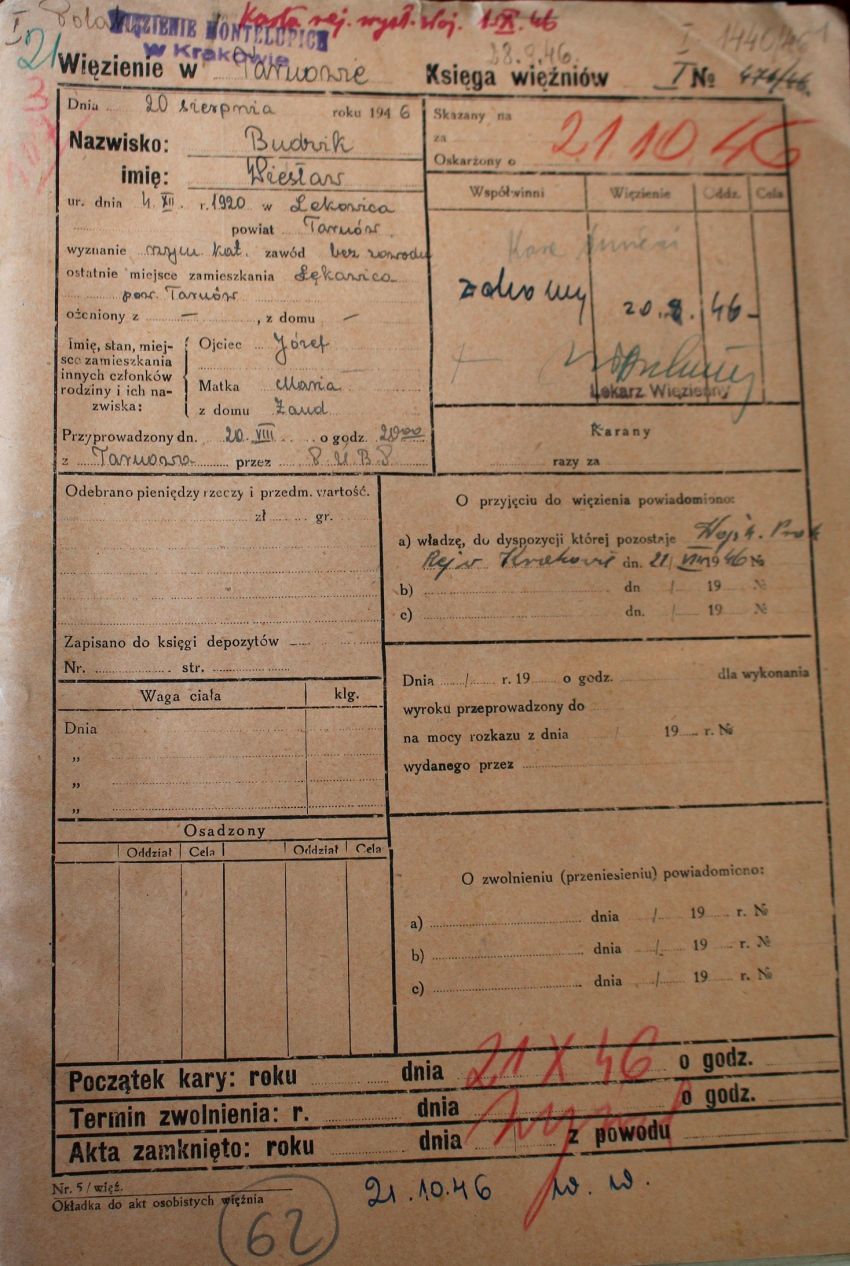 I Polak WIĘZIENIE MONTELUPICH Karta rej. wysł. Woj. 1.X.46
w Krakowie 28.9.46 I 1440/46
21 Więzienie w Tarnowie Księga więźniów I № 471/46
Dnia 20 sierpnia roku 1946
Nazwisko: Budzik
imię: Wiesław
ur. dnia 4 XII. r. 1920 w Łękawica
powiat Tarnów
wyznanie rzym. kat. zawód bez zawodu
ostatnie miejsce zamieszkania Łękawica
pow. Tarnów
ożeniony z — , z domu —
Imię, stan, miejsce zamieszkania innych członków rodziny i ich nazwiska:
Ojciec Józef
Matka Maria
z domu Zaud
Przyprowadzony dn. 20. VIII. o godz. 20⁰⁰
z Tarnowa przez P.U.B.P.
Skazany na
za
Oskarżony o
21 10 46
Współwinni Więzienie Oddz. Cela
zdrowy 20.8.46-
Lekarz Więzienny
Karany
razy za
Odebrano pieniędzy rzeczy i przedm. wartość.
zł gr.
Zapisano do księgi depozytów
Nr. str.
Waga ciała klg.
Dnia
„
„
„
O przyjęciu do więzienia powiadomiono:
a) władzę, do dyspozycji której pozostaje Wojsk. Prok
Rej w Krakowie dn. 21/VIII 1946 №
b) dn / 19 №
c) dn. / 19 №
Dnia / r. 19 o godz. dla wykonania
wyroku przeprowadzony do
na mocy rozkazu z dnia / 19 r. №
wydanego przez
Osadzony
Oddział Cela Oddział Cela
O zwolnieniu (przeniesieniu) powiadomiono:
a) dnia / 19 r. №
b) dnia / 19 r. №
c) dnia / 19 r. №
Początek kary: roku dnia 21 X 46 o godz.
Termin zwolnienia: r. dnia o godz.
Akta zamknięto: roku dnia z powodu
Nr. 5/więź.
Okładka do akt osobistych więźnia
21.10.46 w. w.
62